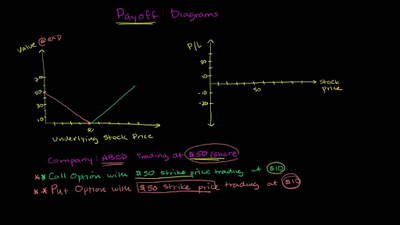 Payoff Diagrams
Value @ exp
50
10
50
Underlying Stock Price
P/L
10
-10
-20
50
Stock Price
Company: ABCD Trading at $50/share
** Call Option with $50 strike price trading at $10
** Put Option with $50 strike price trading at $10